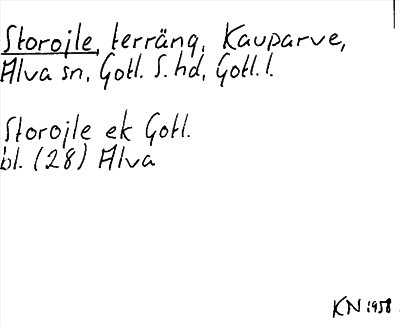 Storojle, terräng, Kauparve,
Alva sn, Gotl. S. hd, Gotl. l.
Storojle ek Gotl.
bl. (28) Alva
KN 1958